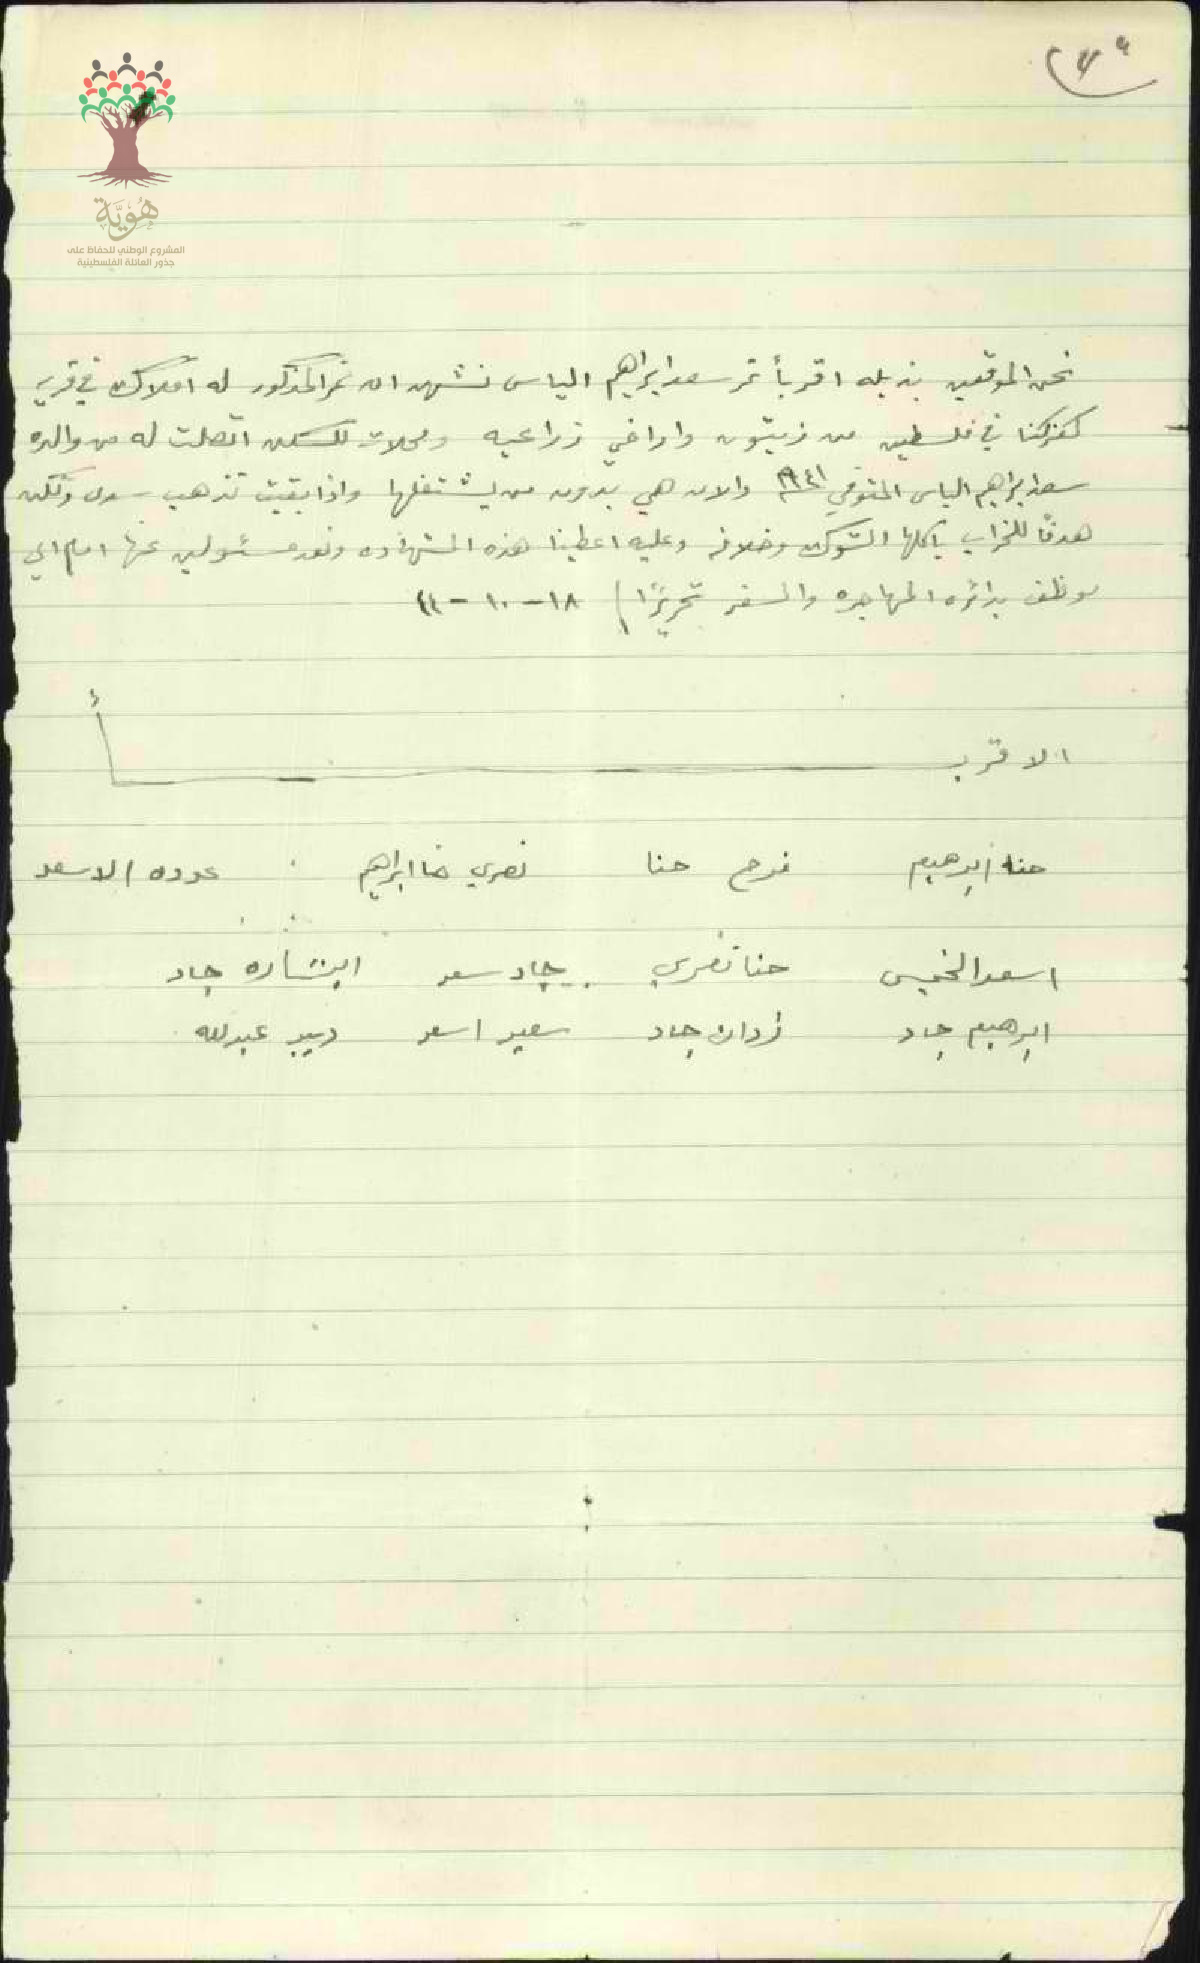 هُوِيَّة
المشروع الوطني للحفاظ على
جذور العائلة الفلسطينية
نحن الموقعين بذيله اقربأ نمر سعد ابراهيم الياس نشهد ان نمر المذكور له املاك في قرية
كفركنا في فلسطين من زيتون واراضي زراعيه ومحلات للسكن اتصلت له من والده
سعد ابراهيم الياس المتوفي والان هي بدون من يشتغلها واذا بقيت تذهب سدى وتكن
هدفًا للخراب ياكلها الشوك وخلافه وعليه اعطينا هذه الشهاده ونعد مسئولين عنها امام اي
موظف بدائره المهاجره والسفر تحريرًا ١٨-١٠-
الاقربــأ
حنا ابرهيم فرح حنا نصري حنا ابراهيم عوده الاسعد
اسعد الخميس حنا نصري جاد سعد ابشاره جاد
ابرهيم جاد جاد سعيد اسعد ديب عبدلله